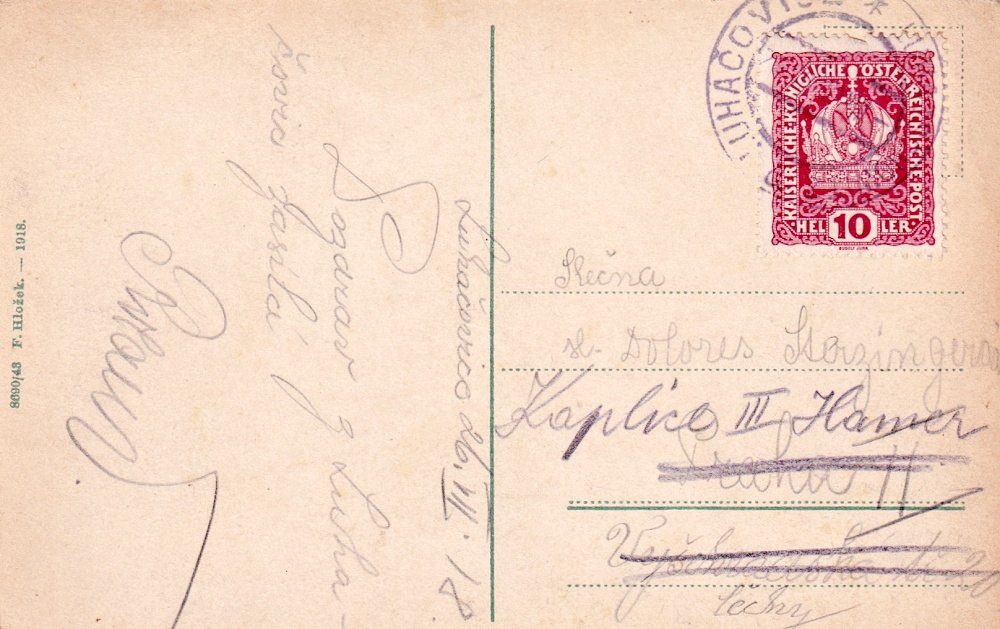 8690/43 F. Hložek. — 1918.
Luhačovice 26. VII. 18
Pozdrav z Luha-
čovic zasílá
LUHAČOVICE *
KAISERLICHE·KÖNIGLICHE ÖSTERREICHISCHE·POST
HELLER
10
RUDOLF JUNK
Slečna
sl. Dolores Sterzingerova
Kaplice III Hamer
Praha II
Čechy